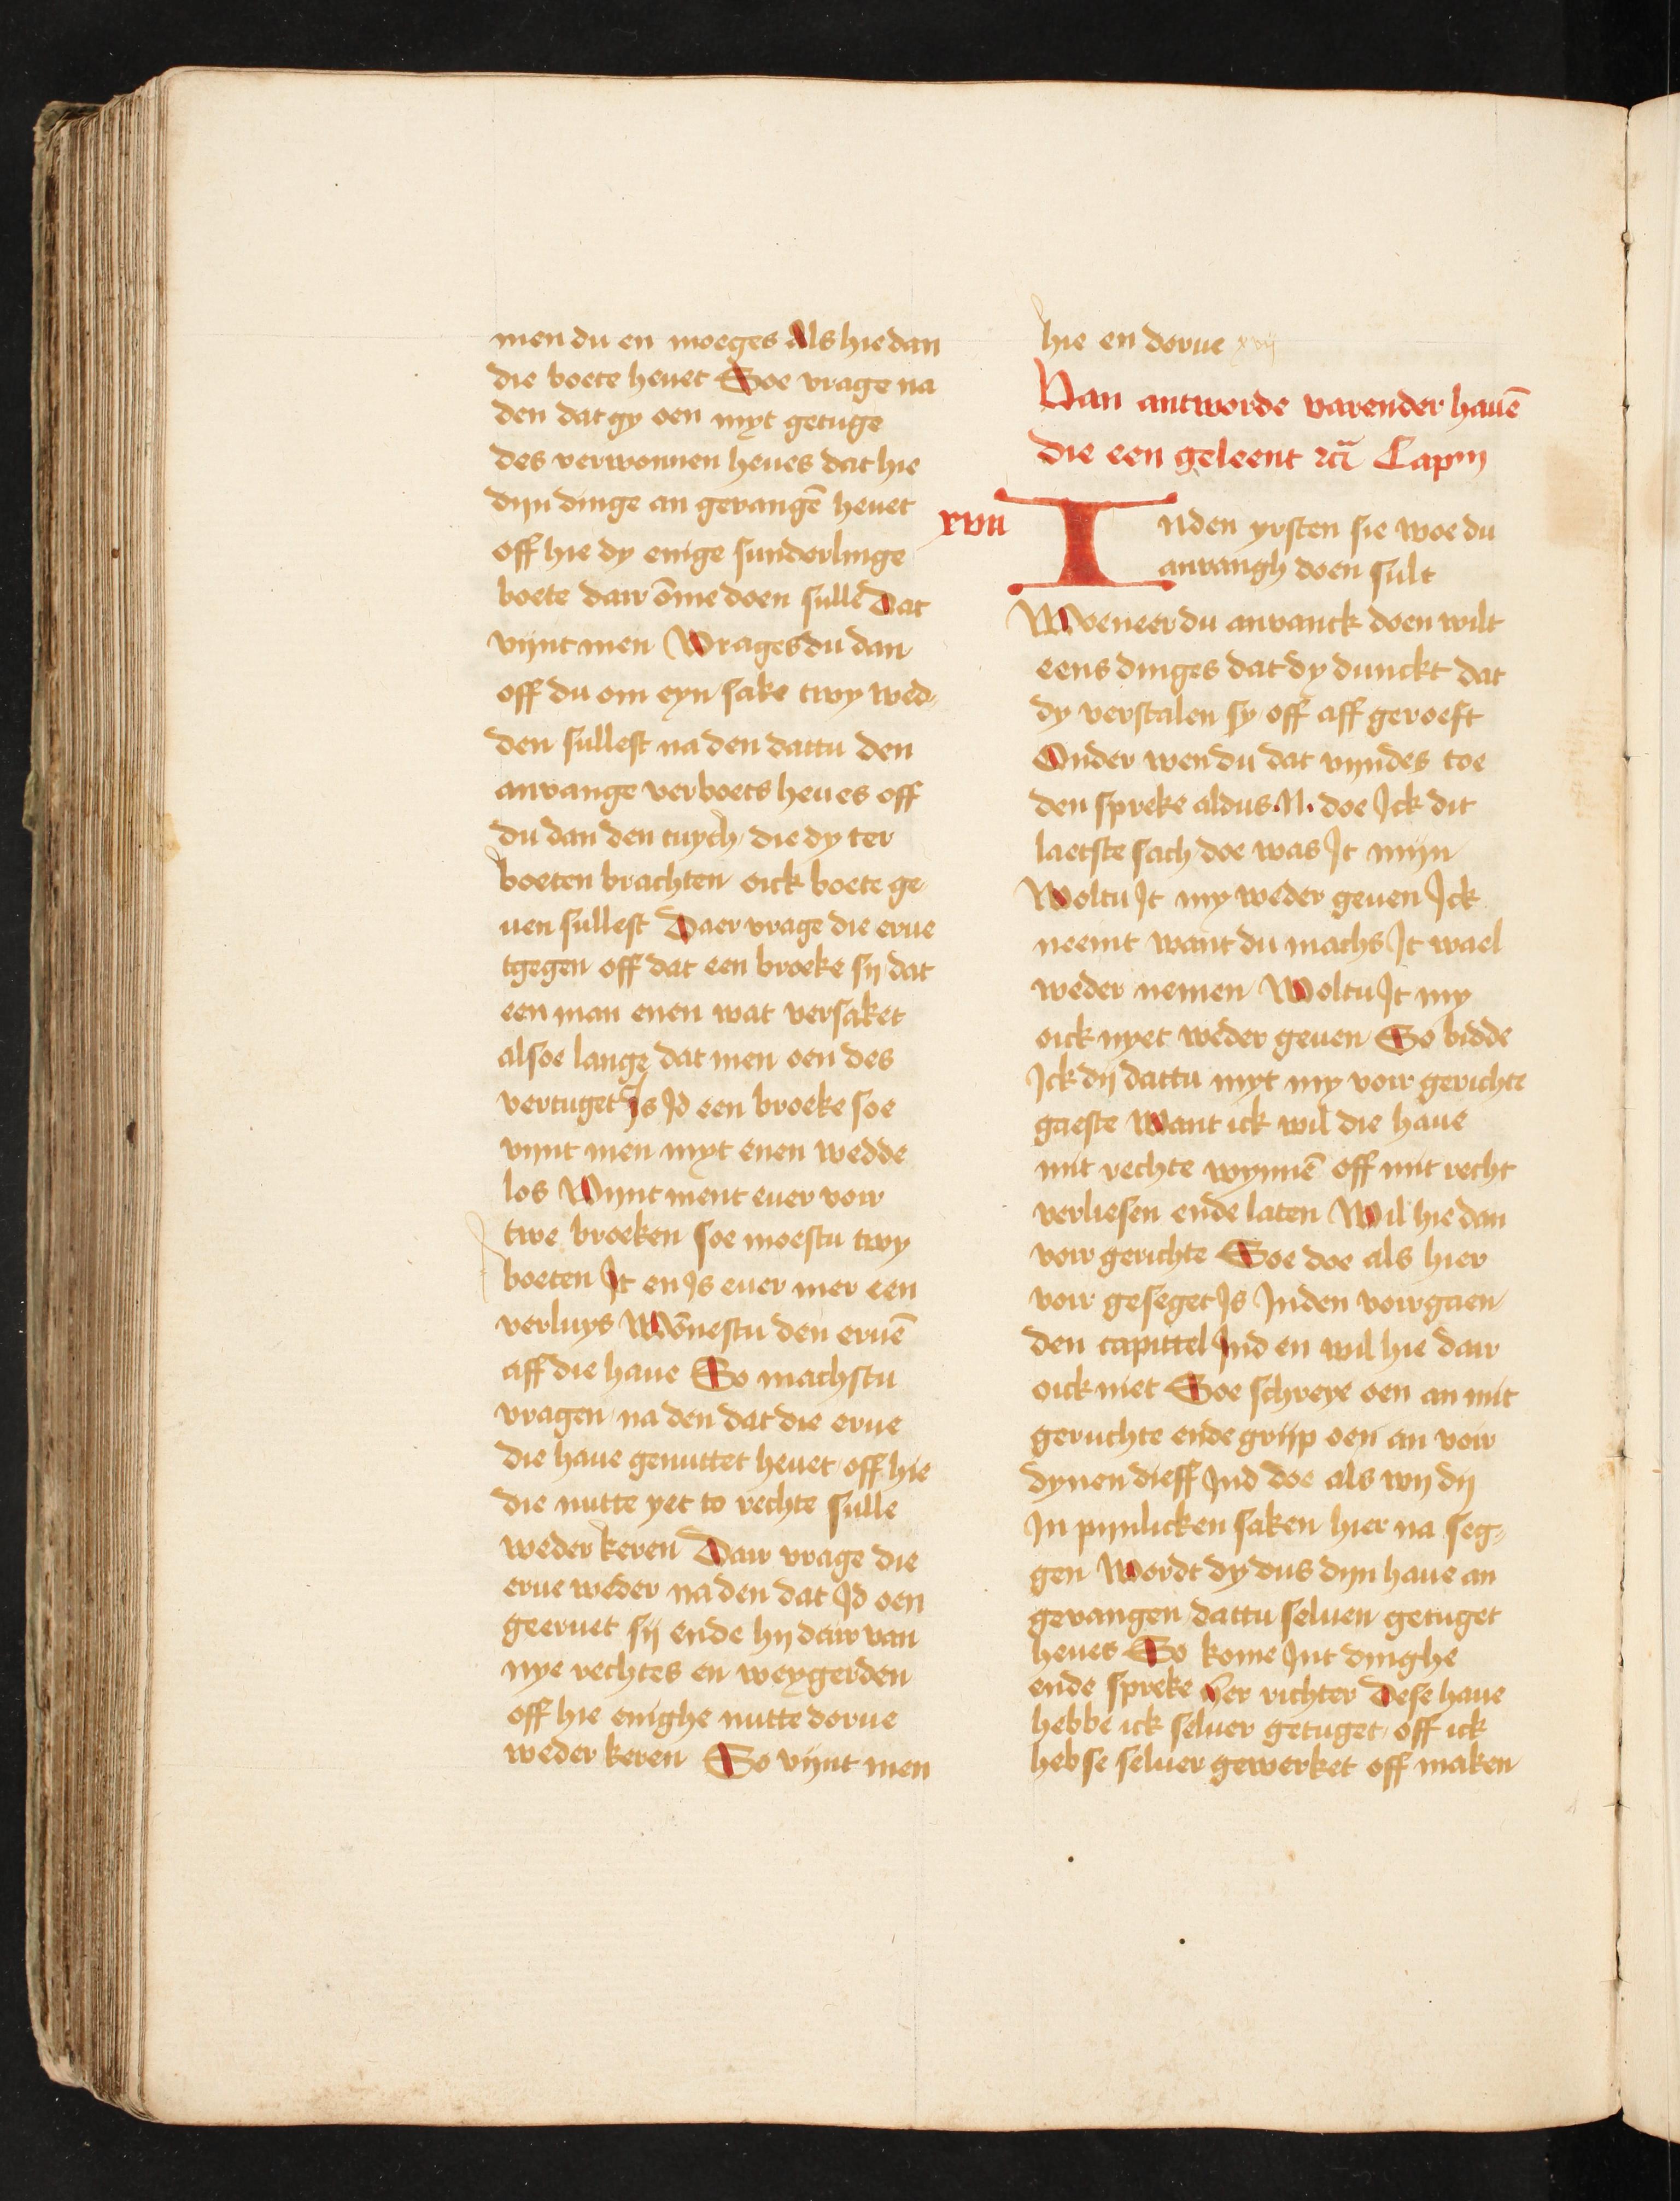 men du en moeges Als hie dan
die boete heuet Soe vrage na
den dat gy oen myt getuge
des verwonnen heues dat hie
dijn dinge an gevangē heuet
off hie dy enige sunderlinge
boete dair ōme doen sulle Dat
vijnt men Vrages du dan
off du om eyn sake twy wed-
den sullest na den dattu den
anvange verboets heues off
du dan den tuych die dy ter
boeten brachten oick boete ge
uen sullest Daer vrage die erue
tgegen off dat een broeke sij dat
een man enen wat versaket
alsoe lange dat men oen des
vertuget Is Id een broeke soe
vijnt men myt enen wedde
los Vijnt ment euer voir
twe broeken soe moestu twy
boeten It en Is euer mer een
verluys Wȫnestu den eruē
aff die haue So machstu
vragen na den dat die erue
die haue genuttet heuet off hie
die nutte yet to rechte sulle
weder keren Dair vrage die
erue weder na den dat Id oen
geeruet sij ende hij dair van
nye rechtes en weygerden
off hie enighe nutte dorue
weder keren So vijnt men
hie en dorue xvij
Van antworde varender hauē
die een geleent rc̄ Cap<sup></sup>m
xvii
Inden yrsten sie woe du
anvangh doen sult
Woeneer du anvanck doen wilt
eens dinges dat dy dunckt dat
dy verstalen sy off aff geroeft
Onder wen du dat vijndes toe
den spreke aldus .N. doe Ick dit
laetste sach doe was It mijn
Woltu It my weder geuen Ick
neemt want du machs It wael
weder nemen Woltu It my
oick nyet weder geuen So bidde
Ick dij dattu myt my voir gerichte
gaeste Want ick wil die haue
mit rechte wynnē off mit recht
verliesen ende laten Wil hie dan
voir gerichte Soe doe als hier
voir geseget Is Inden voirgaen
den capittel Ind en wil hie dair
oick niet Soe schreye oen an mit
geruchte ende grijp oen an voir
dynen dieff Ind doe als wij dij
In pijnlicken saken hier na seg-
gen Wordt dy dus dijn haue an
gevangen dattu seluen getuget
heues So kome Int dinghe
ende spreke Her richter Dese haue
hebbe ick seluer getuget off ick
heb se seluer gewerket off maken